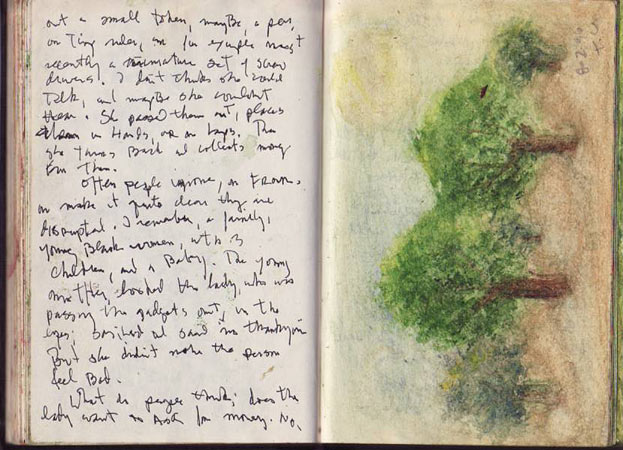 out a small token, maybe, a pen,
or tiny ruler, or for example most
recently a miniature set of screw
drivers. I don't think she could
talk, and maybe she couldn't
hear. She passed them out, places
them in Hands, or on laps. Then
she turns Back and collects money
from them.
Often people ignore, or Frown,
or make it quite clear they are
disrupted. I remember, a family,
young Black women, with 3
children, and a Baby. The young
mother, looked the lady, who was
passing the gadgets out, in the
eyes; and said "no thank you"
But she didn't make the person
feel Bad.
What do people think; does the
lady want to ask for money. No,